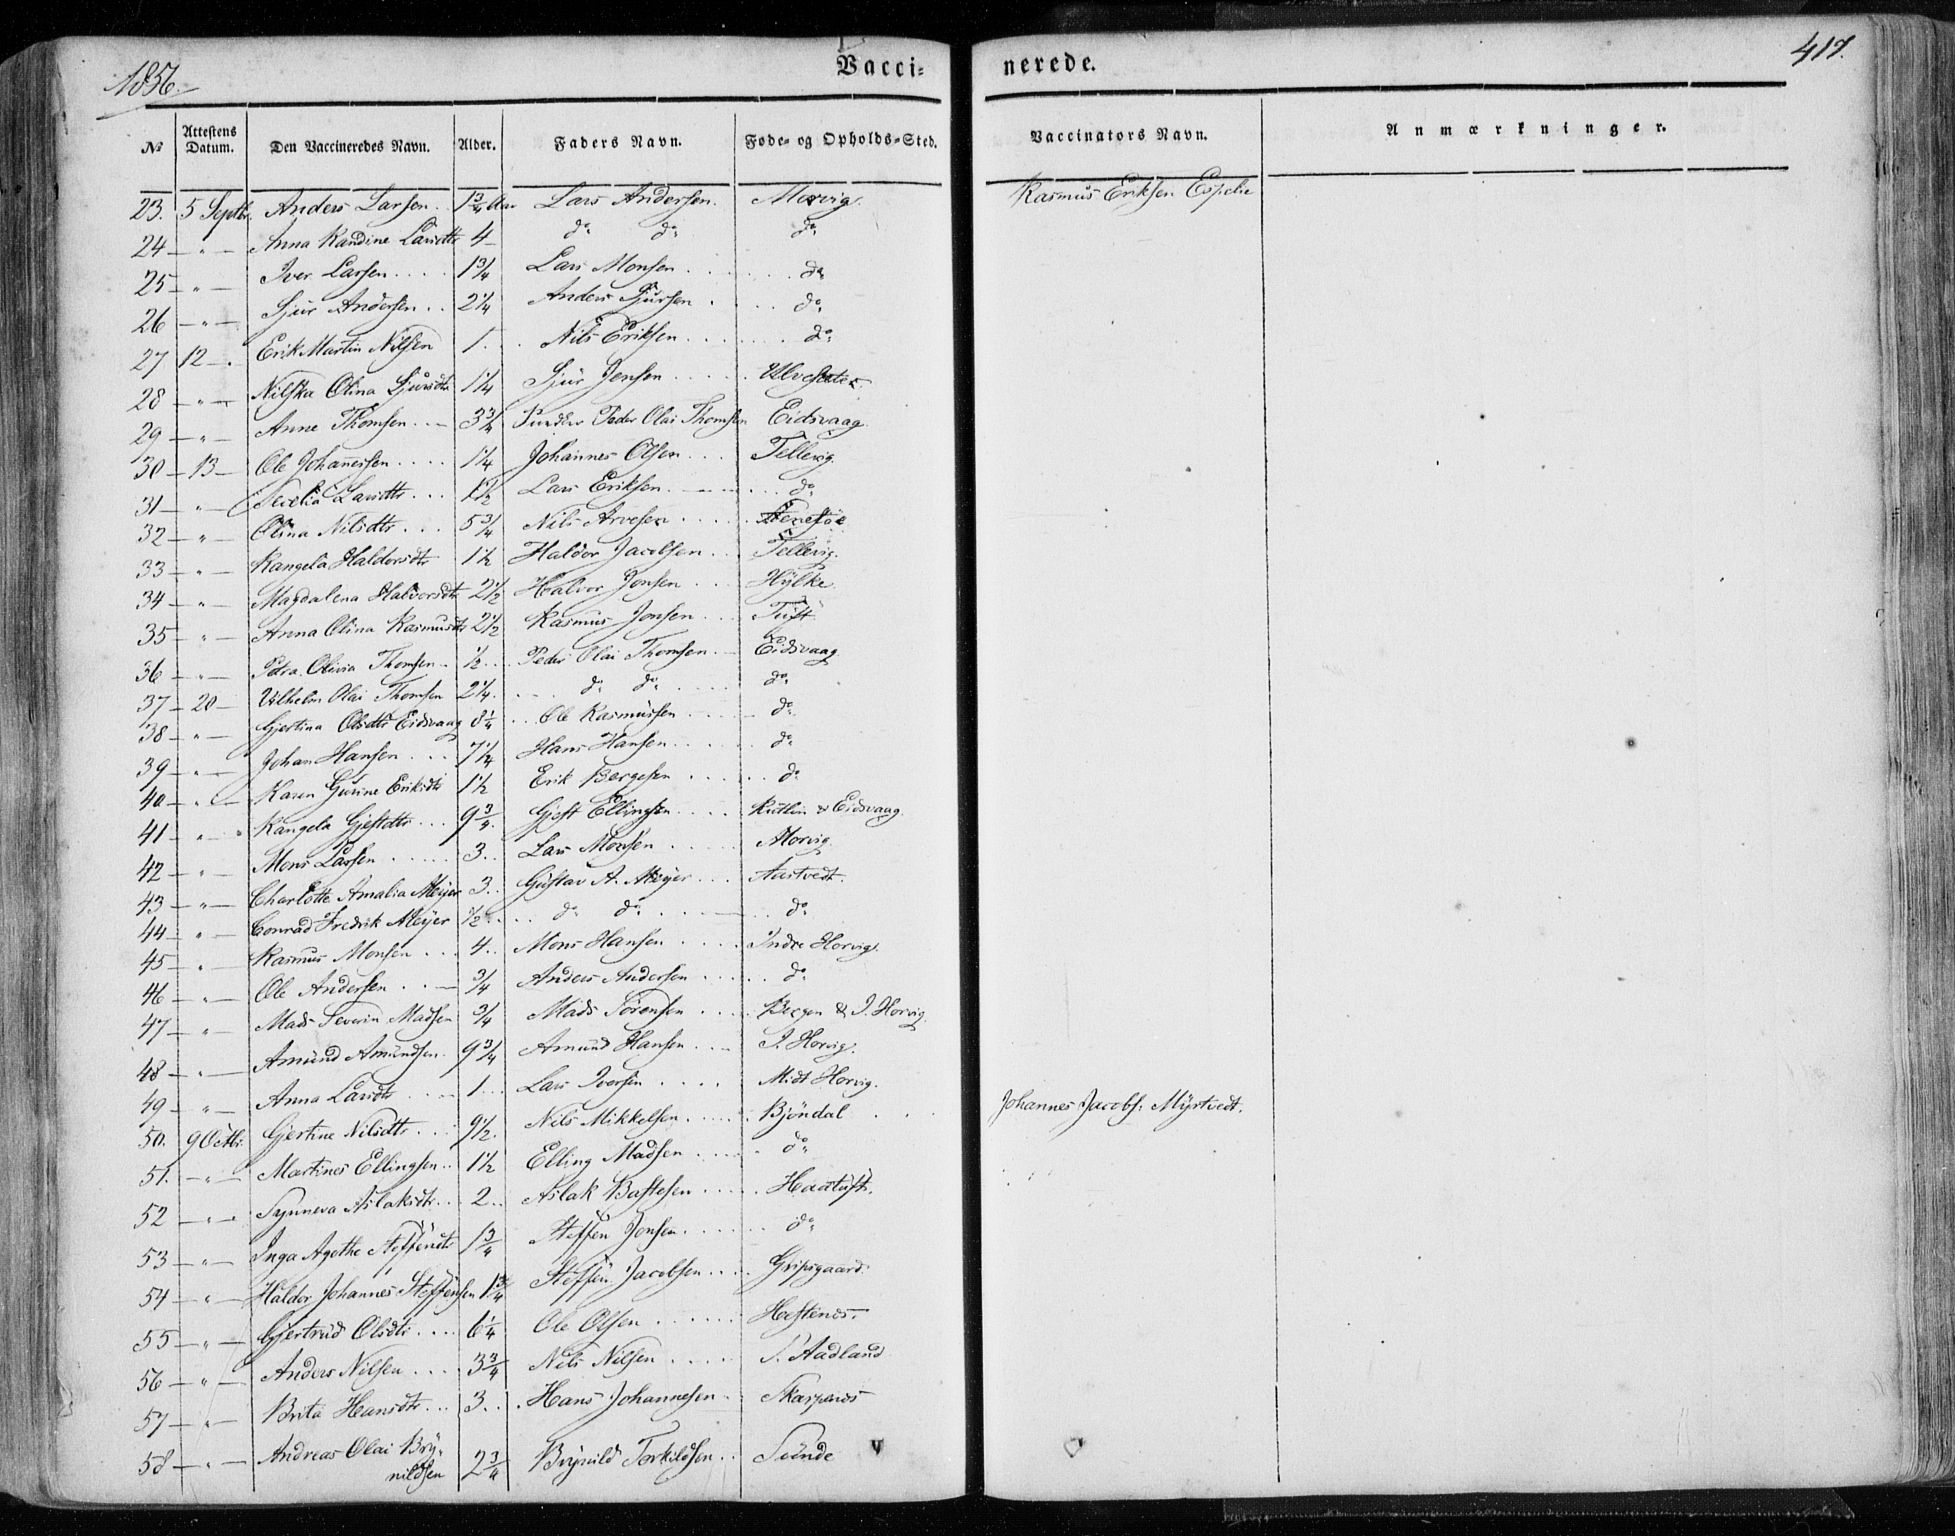 1856.
Vacci-
nerede.
417.
№ Attestens Datum. Den Vaccineredes Navn. Alder. Faders Navn. Føde- og Opholds-Sted. Vaccinators Navn. Anmærkninger.
23. 5 Septbr. Anders Larsen. 1 3/4 Aar Lars Andersen. Morvig. Rasmus Eriksen Espelie
24 — " — Anna Randine Larsdtr 4 — do do do
25 — " — Iver Larsen .... 1 3/4 Lars Monsen ..... do
26 — " — Sjur Andersen .. 2 1/4 Anders Sjursen .... do
27 12 — Erik Martin Nilsen 1. Nils Eriksen ...... do
28 — " — Nilska Olina Sjursdtr 1 1/4 Sjur Jensen ..... Ulvesæter.
29 — " — Anne Thomsen .. 3 3/4 Peder Olai Thomsen Eidsvaag.
30 — 13 — Ole Johannessen .... 1 1/4 Johannes Olsen ... Tellevig.
31 — " — Larsdtr ... 1 1/2 Lars Eriksen ...... do
32 — " — Olina Nilsdtr ... 5 3/4 Nils Arvesen .....
33 — " — Rangela Haldorsdtr 1 1/2 Haldor Jacobsen ... Tellevig.
34 — " — Magdalena Halvorsdtr 2 1/2 Halvor Jonsen ... Hylke.
35 — " — Anna Olina Rasmusdtr 2 1/2 Rasmus Jonsen ... Tuft.
36 — " — Petra Olivia Thomsen .. 1/2 ... Peder Olai Thomsen. — Eidsvaag
37 — 20 — Vilhelm Olai Thomsen 2 1/4. ... do do .... do
38 — " — Gjertina Olsdtr Eidsvaag 8 1/4 ... Ole Rasmussen ..... do
39 — " — Johan Hansen ... 7 1/4 Hans Hansen ..... do
40 — " — Karen Gurine Eriksdtr 1 1/2 Erik Børgesen ...... do
41 " " Rangela Gjestdtr ... 9 3/4. Gjest Ellingsen .... & Eidsvaag.
42 — " — Mons Larsen ...... 3.. Lars Monsen ..... Morvig.
43 — " — Charlotte Amalia Meyer 3.. Gustav A. Meyer ... Aastvedt.
44 — " — Conrad Fredrik Meyer 1/2 ... do do ..... do
45 — " — Rasmus Monsen ... 4.. Mons Hansen .... Indre Horvig.
46 — " — Ole Andersen .. — 3/4 Anders Andersen ..... do
47 — " — Mads Severin Madsen 3/4 Mads Sørensen .... Bergen & I. Horvig.
48 — " — Amund Amundsen. 9 3/4 Amund Hansen ... I. Horvig.
49 — " — Anna Larsdtr .... 1 ... Lars Iversen .... Midt Horvig.
50. 9 Octbr. Gjertine Nilsdtr ... 9 1/2. Nils Mikkelsen ..... Bjöndal Johannes Jacobs: Myrtvedt.
51. — " — Martines Ellingsen .. 1 1/2 Elling Madsen ..... do
52 — " — Synneva Aslaksdtr .. 2.. Aslak Bastesen ..... Haatuft.
53 — " — Inga Agethe Steffensdtr 1 3/4 Steffen Jonsen ...... do
54 — " — Haldor Johannes Steffensen 1 3/4 Steffen Jacobsen .... Gripsgaard.
55 — " — Gjertrud Olsdtr .... 6 1/4 Ole Olsen ...... Hestenes.
56 — " — Anders Nilsen ... 3 3/4 Nils Nilsen .... Aadland
57 — " — Brita Hansdtr ... 3... Hans Johannesen .. Skarpenes
58 — " — Andreas Olai Bry-
nildsen 2 3/4 Brynild Torkildsen .. Sunde